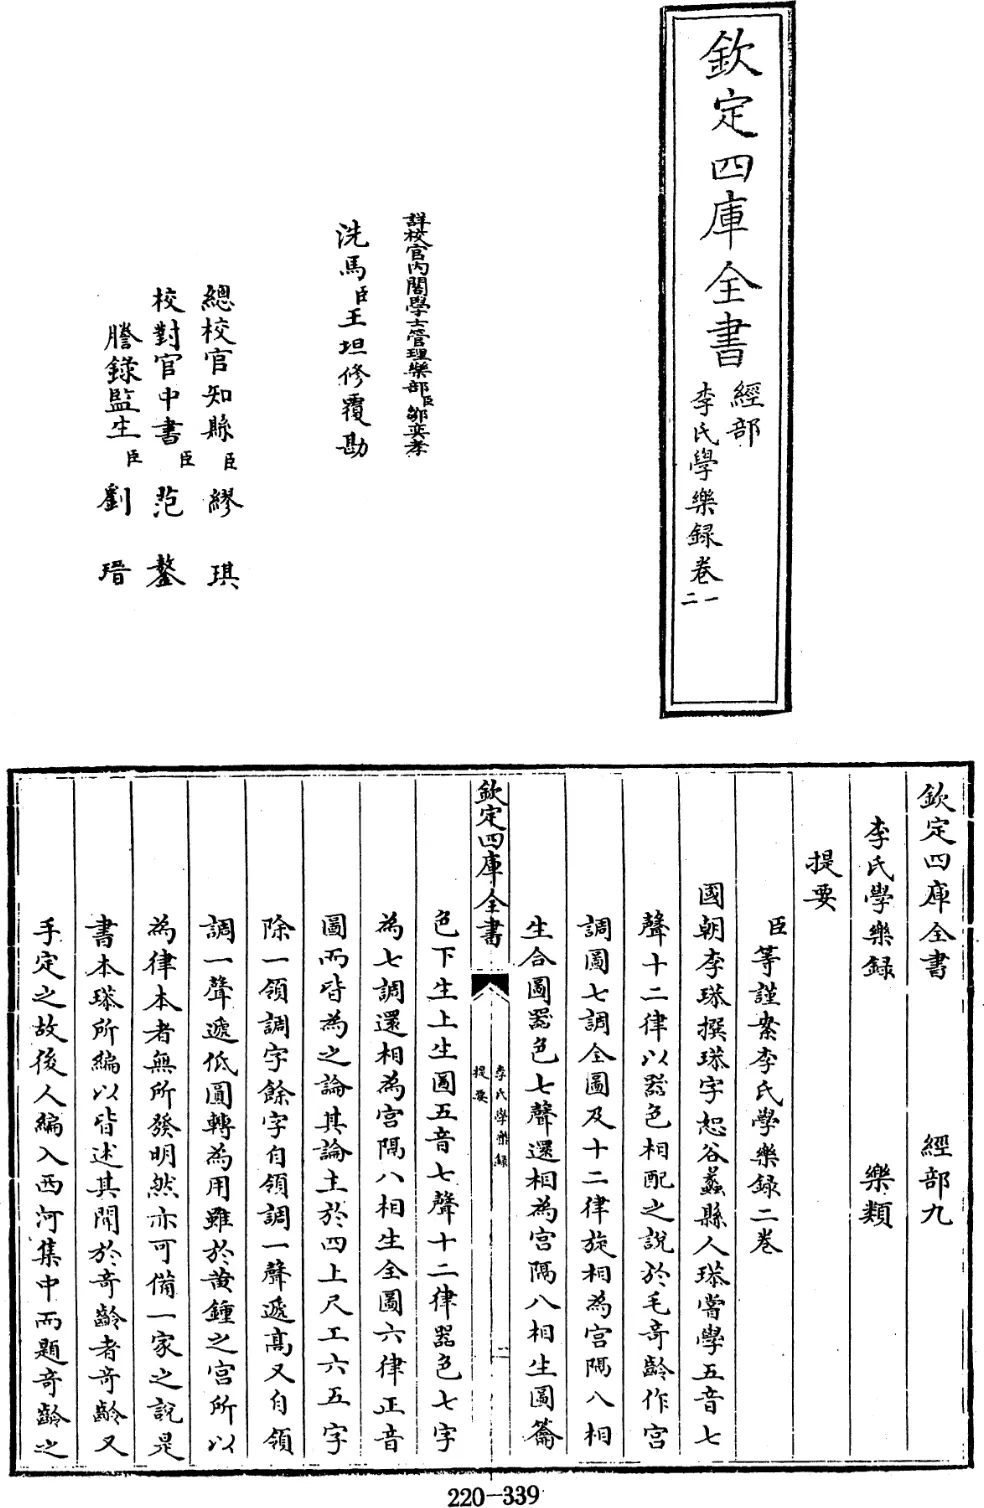 欽定四庫全書
經部
李氏學樂録卷一二
詳校官內閣學士管理樂部臣鄒奕孝
洗馬臣王坦修覆勘
總校官知縣臣繆琪
校對官中書臣范鏊
謄錄監生臣劉瑨
欽定四庫全書 經部九
李氏學樂録 樂類
提要
臣等謹案李氏學樂録二卷
國朝李塨撰塨字恕谷蠡縣人塨嘗學五音七
聲十二律以器色相配之說於毛奇齡作宮
調圖七調全圖及十二律旋相為宮隔八相
生合圖器色七聲還相為宮隔八相生圖籥
欽定四庫全書
李氏學樂録
提要
二
色下生上生圖五音七聲十二律器色七字
為七調還相為宮隔八相生全圖六律正音
圖而皆為之論其論主於四上尺工六五字
除一領調字餘字自領調一聲遞高又自領
調一聲遞低圓轉為用雖於黄鍾之宮所以
為律本者無所發明然亦可備一家之說是
書本塨所編以皆述其聞於奇齡者奇齡又
手定之故後人編入西河集中而題奇齡之
220-339